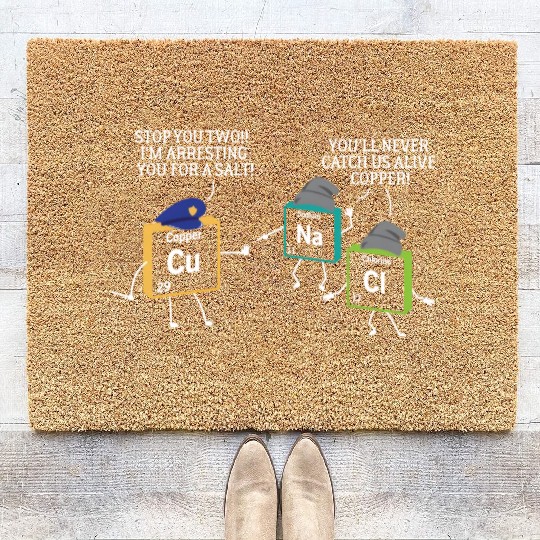 STOP YOU TWO!!
I'M ARRESTING
YOU FOR A SALT!
YOU'LL NEVER
CATCH US ALIVE
COPPER!
Copper
Cu
29
Na
11
Cl